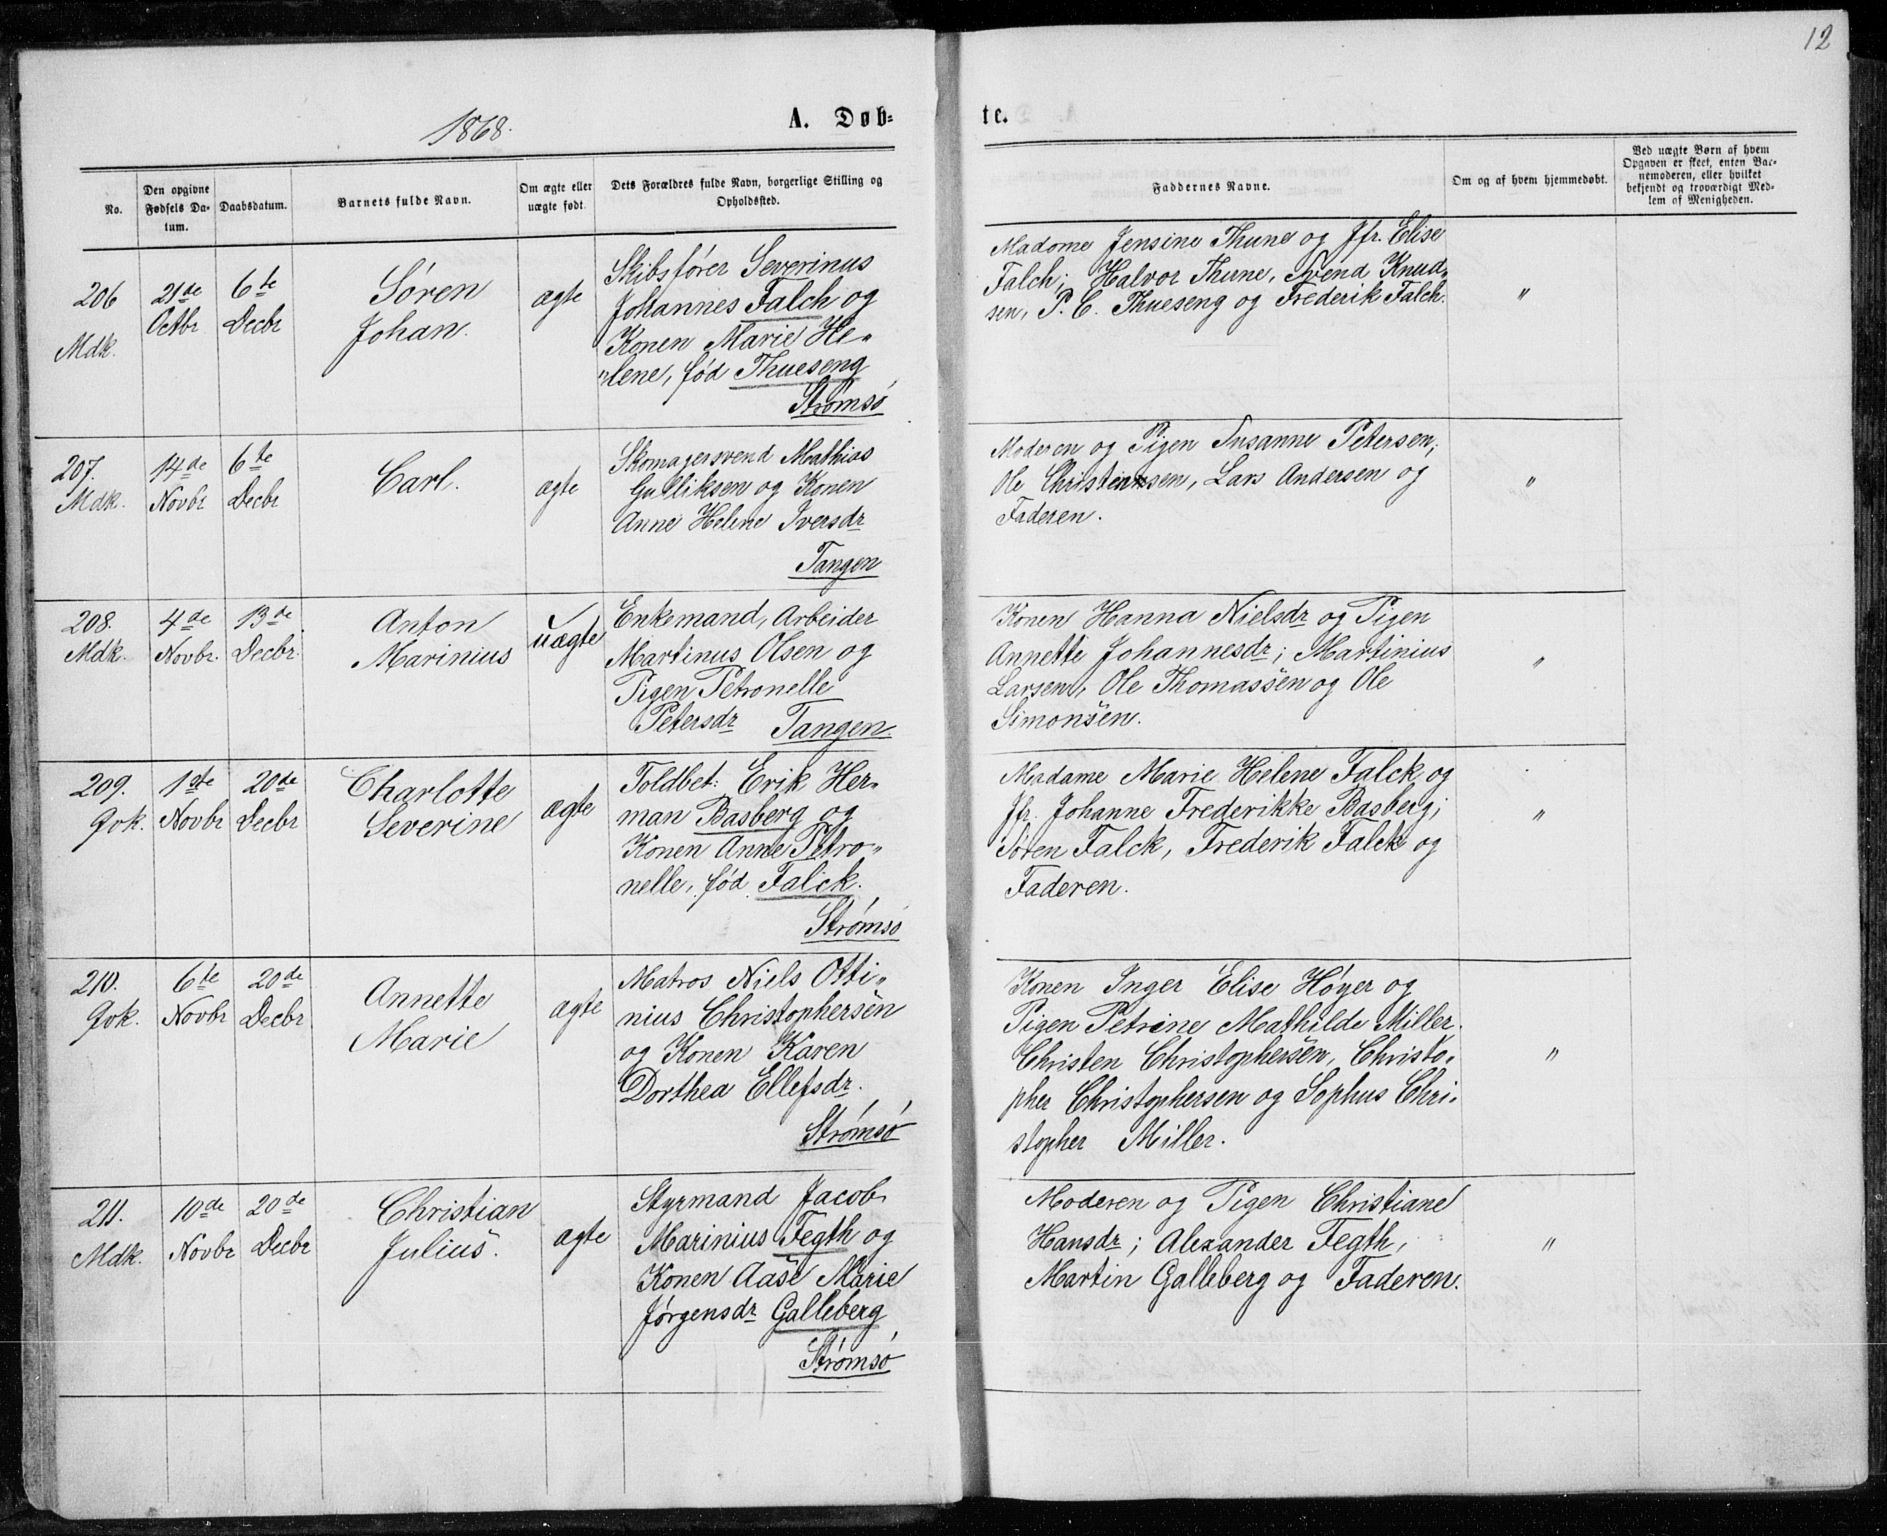 12
1868.
A. Døb-
te.
No.
Den opgivne
Fødsels Da-
tum.
Daabsdatum.
Barnets fulde Navn.
Om ægte eller
uægte født.
Dets Forældres fulde Navn, borgerlige Stilling og
Opholdssted.
Faddernes Navne.
Om og af hvem hjemmedøbt.
Ved uægte Børn af hvem
Opgaven er skeet, enten Bar-
nemoderen, eller hvilket
bekjendt og troværdigt Med-
lem af Menigheden.
206
Mdk.
21de
Octbr
6te
Decbr
Søren
Johan.
ægte
Skibsfører Severinus
Johannes Falch og
Konen Marie He-
"lene, fød Thueseng
Strømsö
Madame Jensine Thune og Jfr. Elise
Falch; Halvor Thune, Svend Knud-
sen, P. C. Thueseng og Frederik Falch.
"
207.
Mdk.
14de
Novbr
6te
Decbr
Carl.
ægte
Skomagersvend Mathias
Gulliksen og Konen
Anne Helene Iversdr
Tangen
Moderen og Pigen Susanne Petersen;
Ole Christensen, Lars Andersen og
Faderen.
"
208.
Mdk.
4de
Novbr.
13de
Decbr.
Anton
Marinius
uægte
Enkemand, Arbeider
Martinus Olsen og
Pigen Petronelle
Petersdr Tangen.
Konen Hanna Nielsdr og Pigen
Annette Johannesdr; Martinius
Larsen, Ole Thomassen og Ole
Simonsen.
"
209.
Gvk.
1ste
Novbr
20de
Decbr
Charlotte
Severine
ægte
Toldbet: Erik Her-
man Basberg og
Konen Anne Petro-
nelle, fød Falck.
Strømsö
Madame Marie Helene Falck og
Jfr. Johanne Frederikke Basberg;
Søren Falck, Frederik Falck og
Faderen.
"
210.
Gvk.
6te
Novbr
20de
Decbr
Annette
Marie
ægte
Matros Niels Otti-
nius Christophersen
og Konen Karen
Dorthea Ellefsdr.
Strømsö
Konen Inger Elise Höyer og
Pigen Petrine Mathilde Miller.
Christen Christophersen, Christo-
pher Christophersen og Sophus Chri-
stopher Miller.
"
211.
Mdk.
10de
Novbr
20de
Decbr
Christian
Julius.
ægte
Styrmand Jacob
Marinius Fegth og
Konen Aase Marie
Jørgensdr Galleberg
Strømsö
Moderen og Pigen Christiane
Hansdr; Alexander Fegth,
Martin Galleberg og Faderen.
"